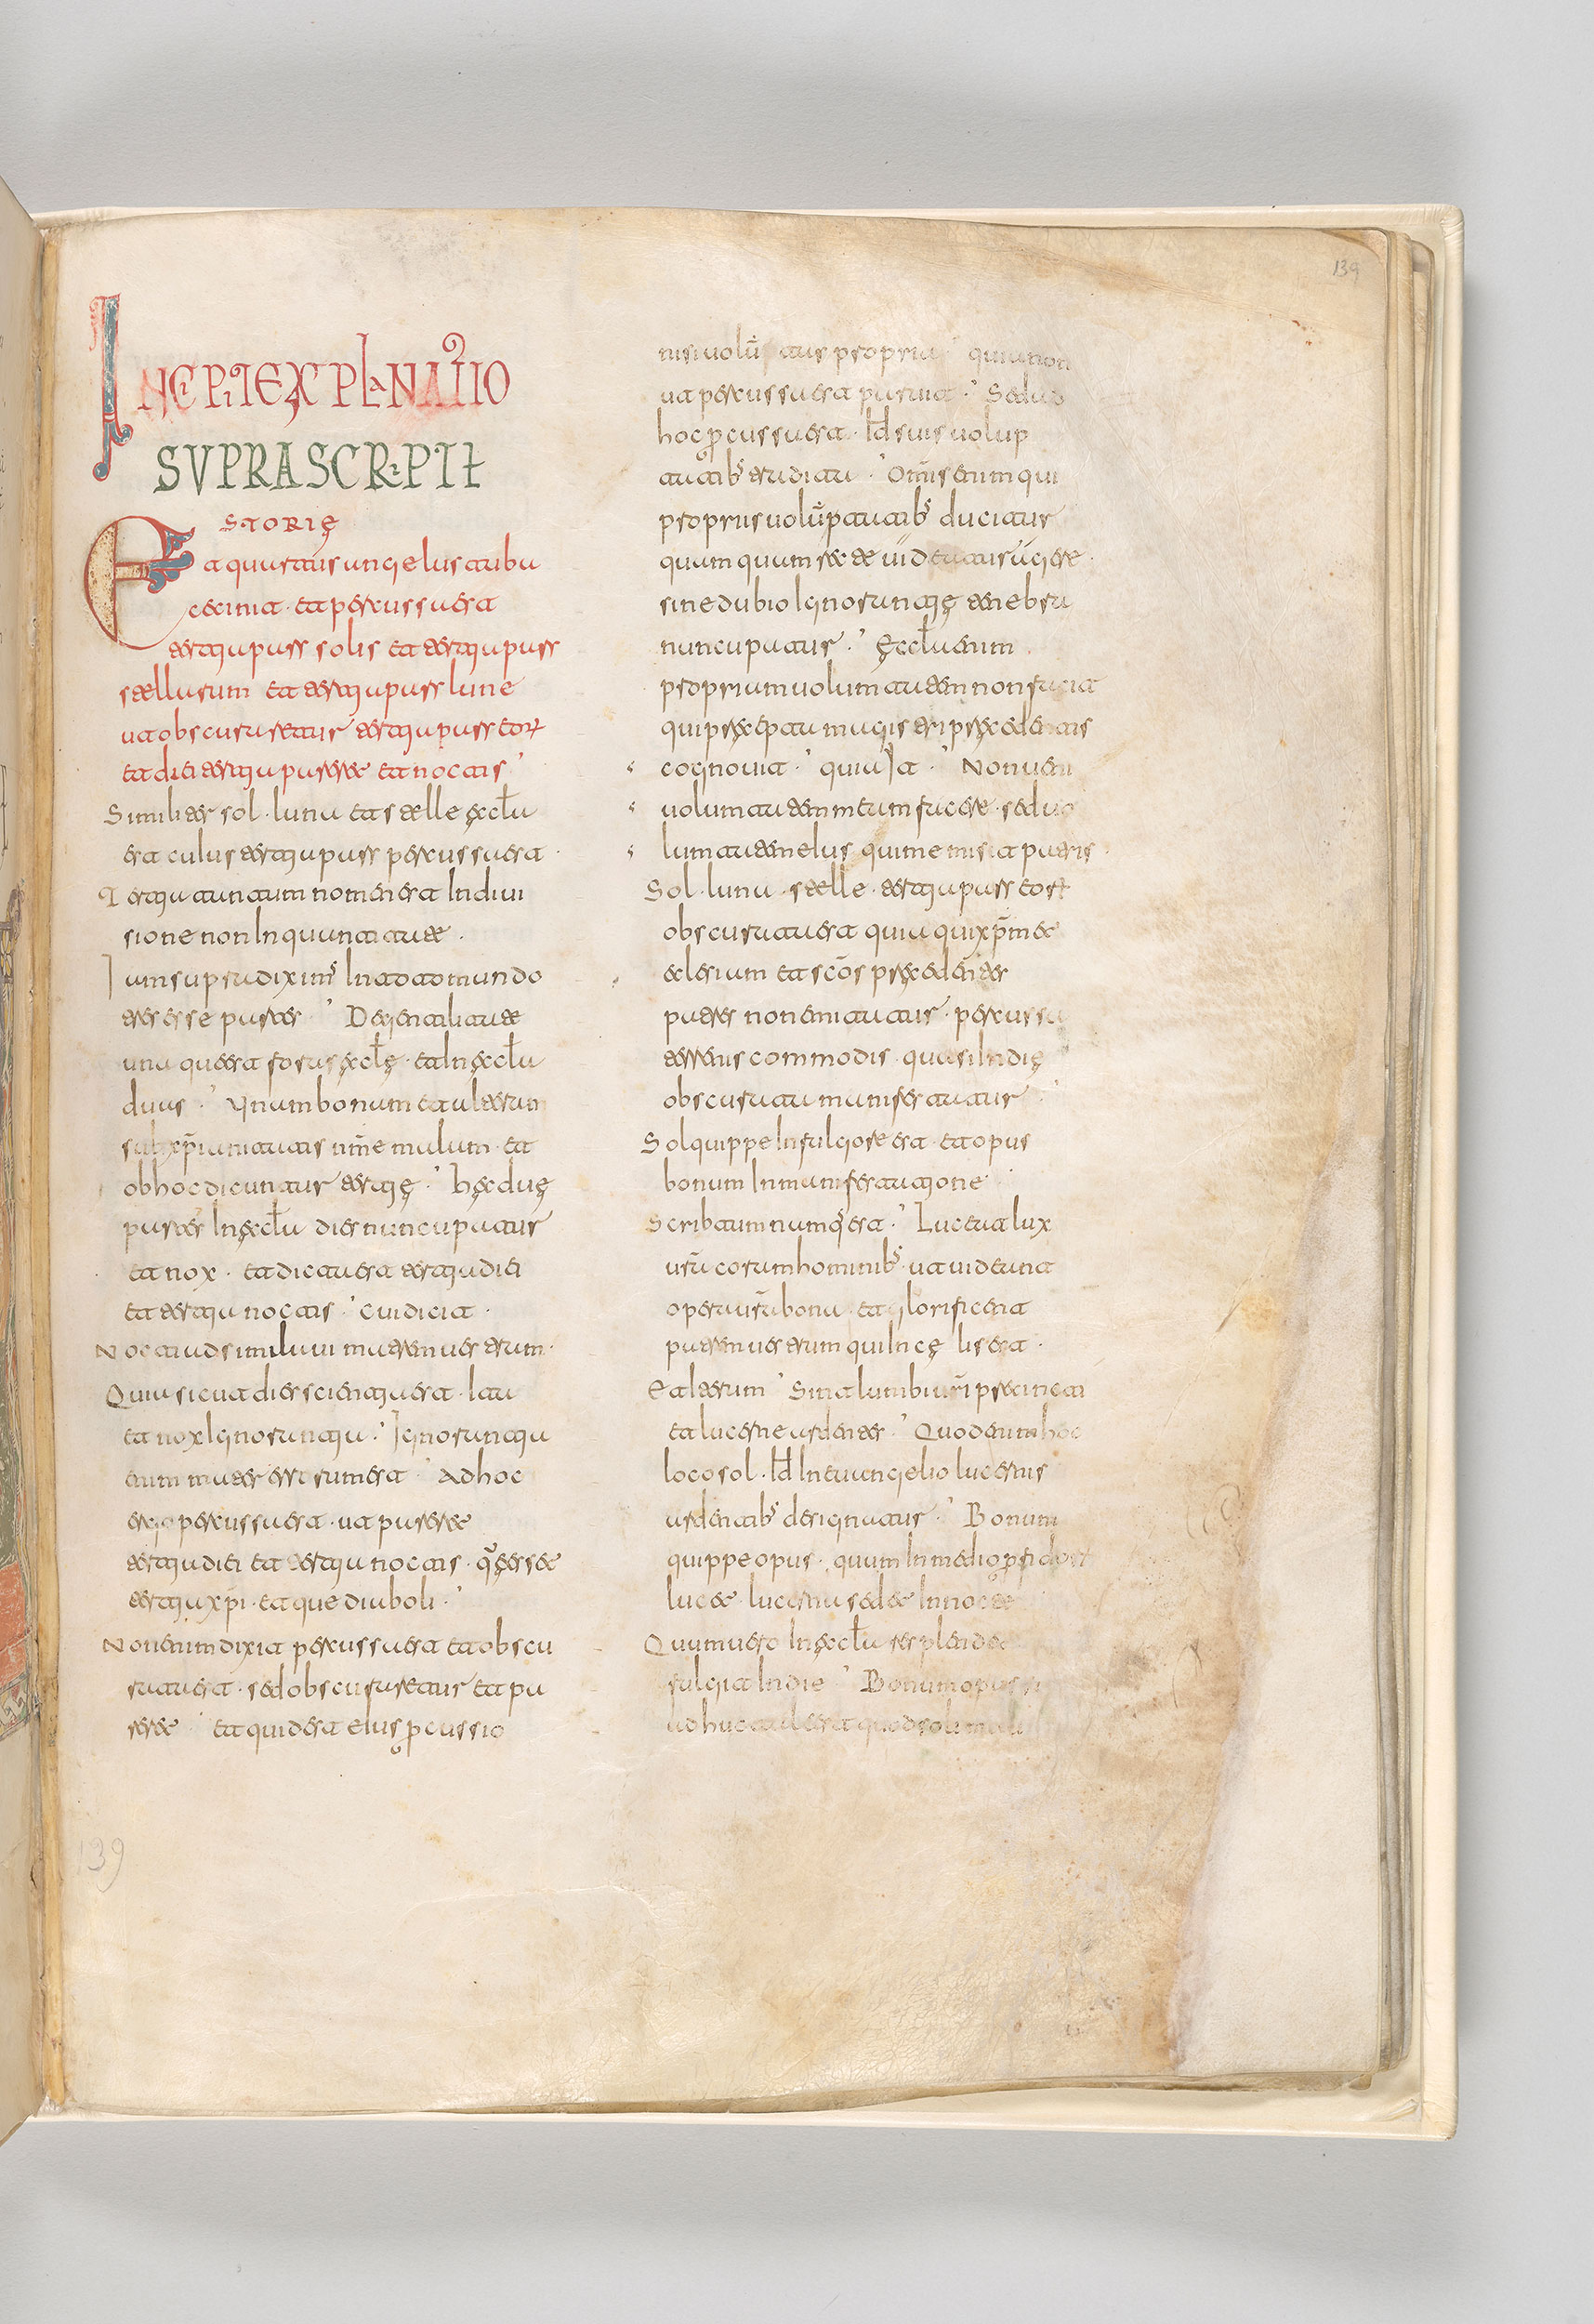 INCIPIT EXPLANATIO
SUPRASCRIPTE
STORIĘ
Et quartus angelus tuba
cecinit · et percussa est
tertia pars solis et tertia pars
stellarum et tertia pars lune
ut obscuraretur tertia pars eorum
et diei tertia parere et noctis
Similiter sol · luna et stelle ęccla
est cuius tertia pars percussa est ·
Tertia autem nomen est In divi
sione non In quantitate ·
Jam supra diximus In toto mundo
tres esse partes · De gentilitate
una que est foras ęcclę · et In ęccla
duas · Unum bonum et alterum
sub xpianitatis nme malum · et
ob hoc dicuntur tertię · hęc duę
partes In ęccla dies nuncupatur
et nox · et dicta est tertia diei
et tertia noctis · cui dicit ·
Nocti adsimilavi matrem vestram ·
Quia sicut dies scientia est · Ita
et nox Ignorantia · Ignorantia
enim mater errorum est · Ad hoc
ergo percussa est · ut parere
tertia diei et tertia noctis · quę esset
tertia xpi · et que diaboli ·
Non enim dixit percussa est et obscu
rata est · sed obscuraretur et pa
rere · et quid est eius percussio
nisi voluptatis propria · quia non
ut percussa est paruit · Sed ad
hoc percussa est · Id suis volup
tatibus tradita · Omnis enim qui
propriis voluptatibus ducitur
quamquam recte videatur agere ·
sine dubio Ignorantię tenebra
nuncupatur · Ęccla enim
propriam voluntatem non facit
qui pręcepta magis et pręcedentis
cognovit · quia It · Non veni
voluntatem meam facere · sed vo
luntatem eius qui me misit patris ·
Sol · luna · stelle · tertia pars eorum
obscurata est quia qui xpm et
ecclesiam et scos pręcedentes
patres non imitatur · percussa
terrenis commodis · quasi In die
obscurata manifestatur ·
Sol quippe In fulgore est · et opus
bonum In manifestatione
Scribtum namque est · Luceat lux
vestra coram hominibus · ut videant
opera vestra bona · et glorificent
patrem vestrum qui In cęlis est ·
Et alterum · Sint lumbi vestri precincti
et lucerne ardentes · Quod enim hoc
loco sol · Id In evangelio lucernis
ardentibus designatur · Bonum
quippe opus · quum In medio perfidorum
lucet · lucerna redet In nocte
Quum vero In ęccla resplendet
fulgit In die · Bonum opus si
adhuc tale est quod soli mali
139
139